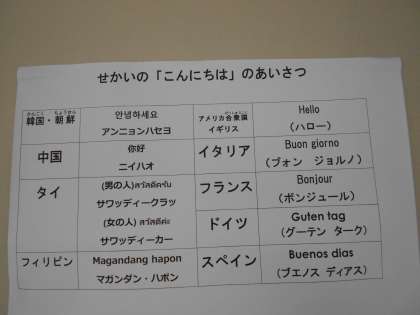 せかいの「こんにちは」のあいさつ
韓国・朝鮮
안녕하세요
アンニョンハセヨ
アメリカ合衆国
イギリス
Hello
(ハロー)
中国
你好
ニイハオ
イタリア
Buon giorno
(ブォン ジョルノ)
タイ
(男の人)สวัสดีครับ
サワッディークラッ
(女の人) สวัสดีค่ะ
サワッディーカー
フランス
Bonjour
(ボンジュール)
ドイツ
Guten tag
(グーテン ターク)
フィリピン
Magandang hapon
マガンダン・ハポン
スペイン
Buenos dias
(ブエノス ディアス)